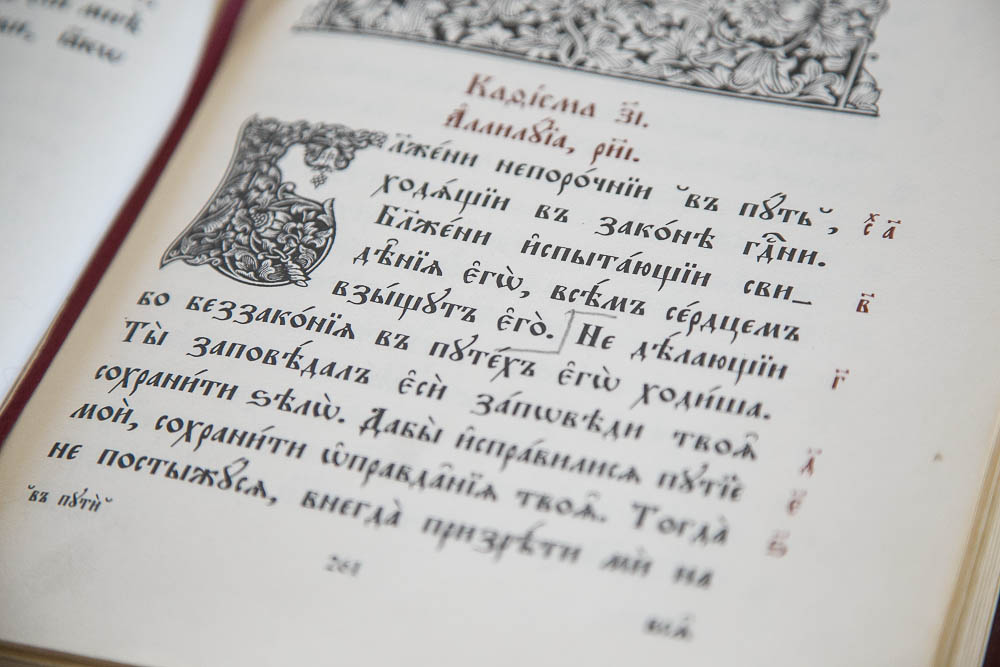 Каѳі́сма з҃і.
А҆ллилꙋ́їа, рн҃і.
Бл҃же́ни непоро́чнїи ̆въ пꙋ́ть̆,
ходѧ́щїи въ зако́нѣ гдⷭ҇ни.
Бл҃же́ни и҆спыта́ющїи сви_
дѣ̑нїѧ є҆гѡ̀, всѣ́мъ се́рдцемъ
взы́щꙋтъ є҆го̀. Не дѣ́лающїи
бо беззако́нїѧ въ пꙋте́хъ є҆гѡ̀ ходи́ша.
Ты̀ заповѣ́далъ є҆сѝ за́пѡвѣди твоѧ̑
сохрани́ти ѕѣлѡ̀. Дабы̀ и҆спра́вилисѧ пꙋтїѐ
моѝ, сохрани́ти ѡ҆правда̑нїѧ твоѧ̑. Тогда̀
не постыжꙋ́сѧ, внегда̀ призрѣ́ти мѝ на
̆въ пꙋтѝ̆
261
всѧ̑
рл҃а
в҃
г҃
д҃
є҃
ѕ҃